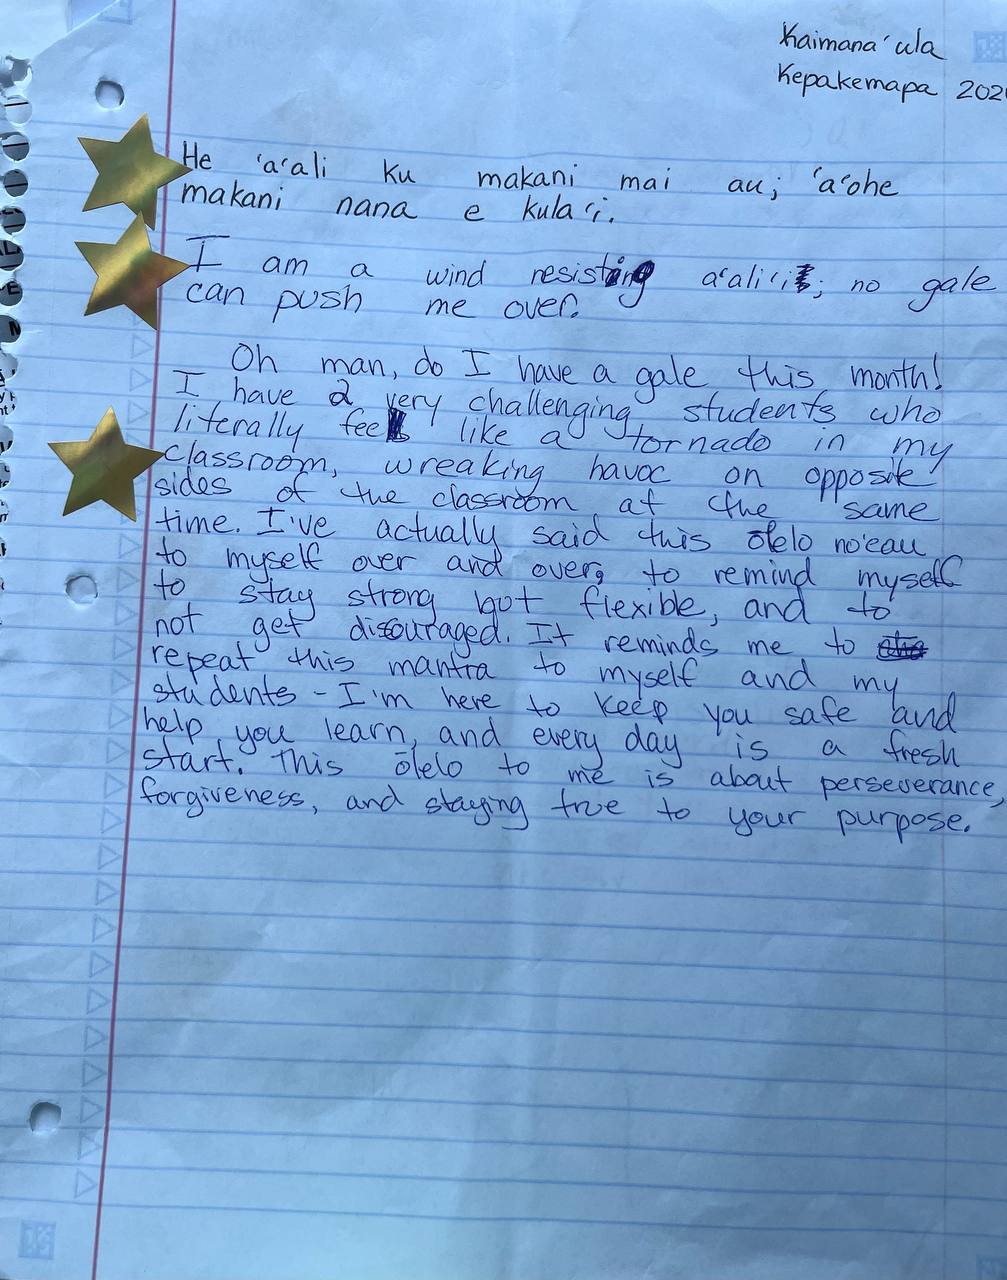 Kaimana‘ula
Kepakemapa 202
He ‘a‘ali ku makani mai au; ‘a‘ohe
makani nana e kula‘i.
I am a wind resisting a‘ali‘i; no gale
can push me over.
Oh man, do I have a gale this month!
I have 2 very challenging students who
literally feel like a tornado in my
classroom, wreaking havoc on opposite
sides of the classroom at the same
time. I've actually said this ōlelo no'eau
to myself over and over, to remind myself
to stay strong but flexible, and to
not get disouraged. It reminds me to
repeat this mantra to myself and my
students - I'm here to keep you safe and
help you learn, and every day is a fresh
start. This ōlelo to me is about perseverance,
forgiveness, and staying true to your purpose.